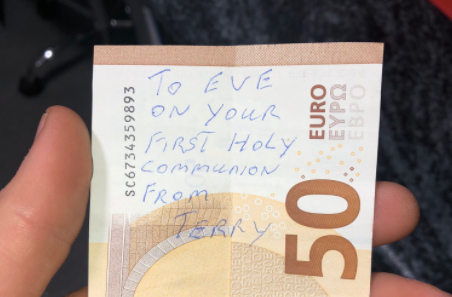 TO EVE
ON YOUR
FIRST HOLY
COMMUNION
FROM
TERRY
SC6734359893
EURO
ΕΥΡΩ
ЕВРО
50